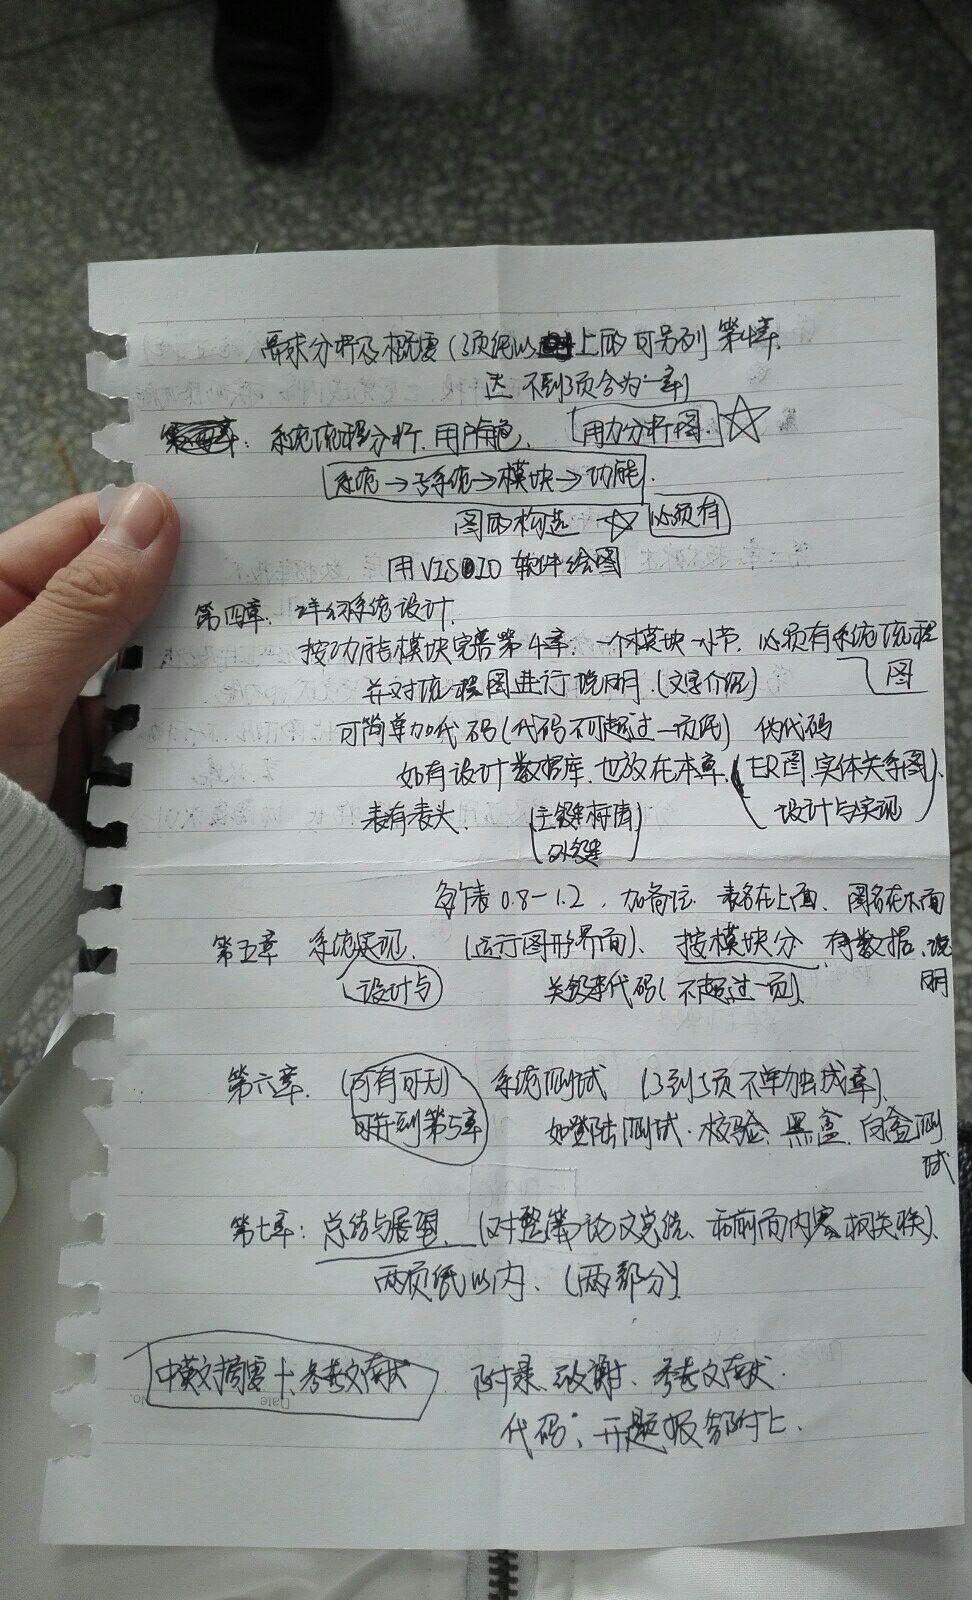 需求分析及概要(3页纸以上的可另列第4章.
达不到3页合为一章)
第四章: 系统流程分析.用户角色. 用力分析图.
系统→子系统→模块→功能.
图的构造 必须有
用VISIO软件绘图
第四章. 详细系统设计.
按功能模块完善第4章.一个模块一小节.必须有系统流程
图
并对流程图进行说明.(文字介绍)
可简单加代码(代码不可超过一页纸) 伪代码
如有设计数据库.也放在本章.(ER图.实体关系图).
设计与实现
表有表头. (主键
外键)
每个表0.8-1.2, 加备注. 表名在上面、图名在下面
第五章 系统实现. (运行图形界面)、按模块分.有数据、说
明
设计与 关键率代码(不超过一页).
第六章. (可有可无) 系统测试 (3到5页不单独成章).
可并到第5章 如登陆测试.校验、黑盒.白盒测
试
第七章: 总结与展望. (对整篇论文总结、和前面内容相关联).
两页纸以内. (两部分)
中英文摘要+参考文献 附录.致谢、参考文献.
No. Date
代码; 开题报告附上.